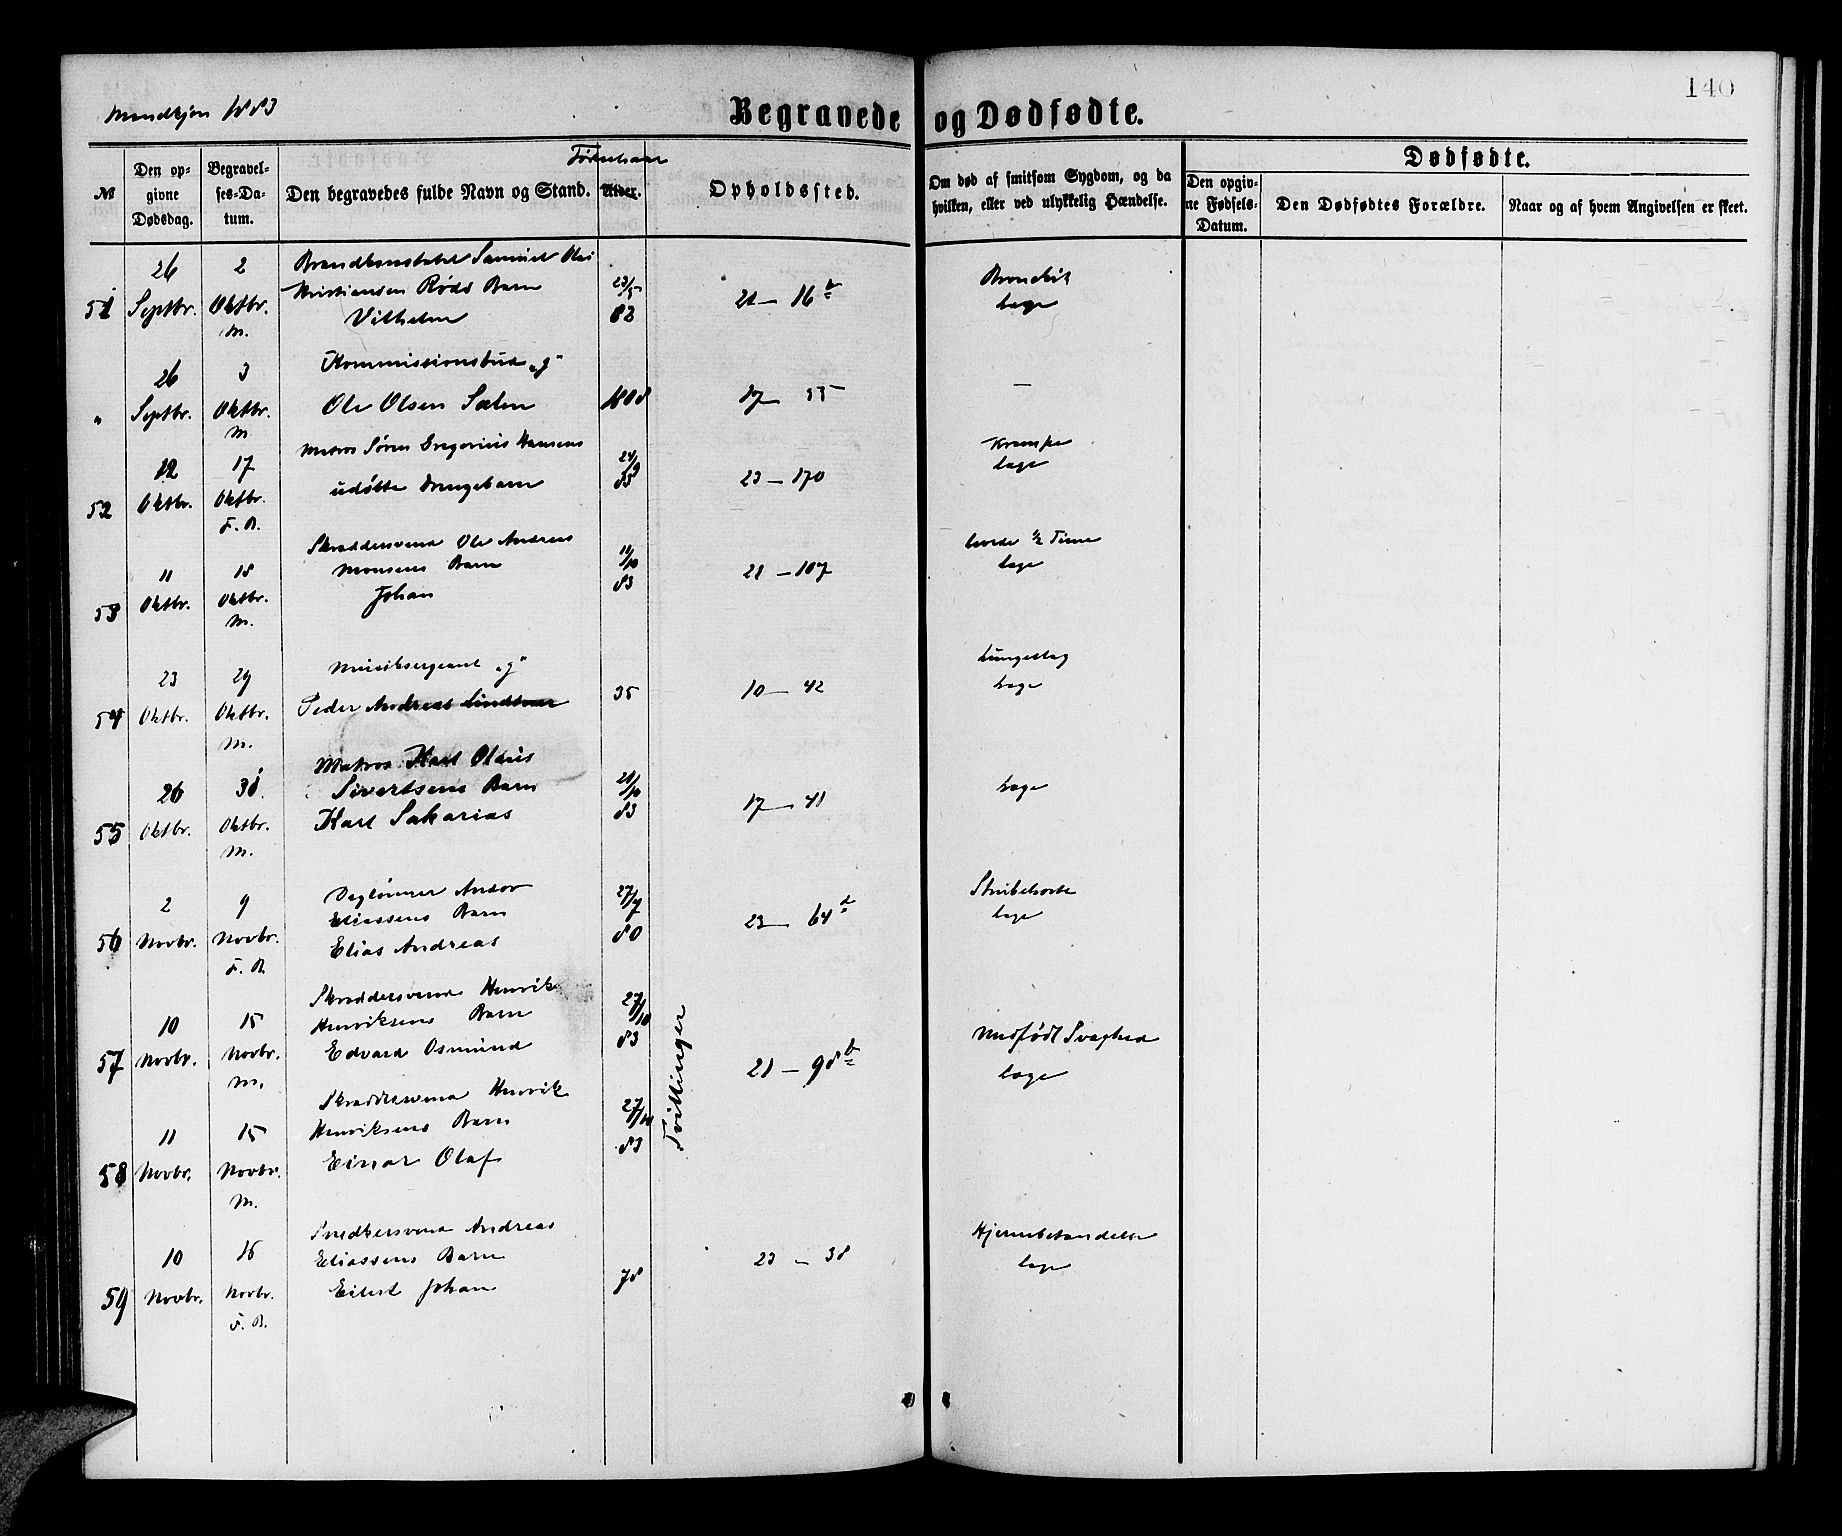 140
Mandkjøn 1883
Begravede og Dødfødte.
№
Den op-
givne
Dødsdag.
Begravel-
ses-Da-
tum.
Den begravedes fulde Navn og Stand.
Alder.
Opholdssted.
Om død af smitsom Sygdom, og da
hvilken, eller ved ulykkelig Hændelse.
Dødfødte.
Den opgiv-
ne Fødsels-
Datum.
Den Dødfødtes Forældre.
Naar og af hvem Angivelsen er skeet.
51
26
Septbr.
2
Oktbr.
M.
Samuel
Kristiansen Røds Barn
Vilhelm
23/5
82
21 — 16 b
læge
"
26
Septbr.
3
Oktbr.
M
Kommissionsbud "g"
Ole Olsen Salen
1808
17 — 35
—
52
12
Oktbr.
17
Oktbr.
F. A.
Matros Søren Gregorius Hansens
udøbte Drengebarn
24/9
83
23 — 170
Krampe
læge
53
11
Oktbr.
18
Oktbr.
M.
Skræddersvend Ole Andreas
Monsens Barn
Johan
11/10
83
21 — 107
levede ½ Time
læge
54
23
Oktbr.
29
Oktbr.
M.
Musiksergeant "g"
Peder Andreas
35
10 — 42
Lungeslag
læge
55
26
Oktbr.
30
Oktbr.
M.
Matros Karl Olaus
Sivertsens Barn
Karl Sakarias
21/10
83
17 — 41
læge
56
2
Novbr.
9
Novbr.
F. A.
Daglønner
Eliassens Barn
Elias Andreas
27/7
80
23 — 64 d
Strubehoste
læge
57
10
Novbr.
15
Novbr.
M.
Skræddersvend Henrik
Henriksens Barn
Edvard Osmund
27/10
83
Tvillinger
21 — 98 b
Medfødt Svaghed
læge
58
11
Novbr.
15
Novbr.
M.
Skræddersvend Henrik
Henriksens Barn
Einar Olaf
27/10
83
59
10
Novbr.
16
Novbr.
F. A.
Snedkersvend Andreas
Eliassens Barn
Eilert Johan
78
23 — 38
Hjernebetændelse
læge